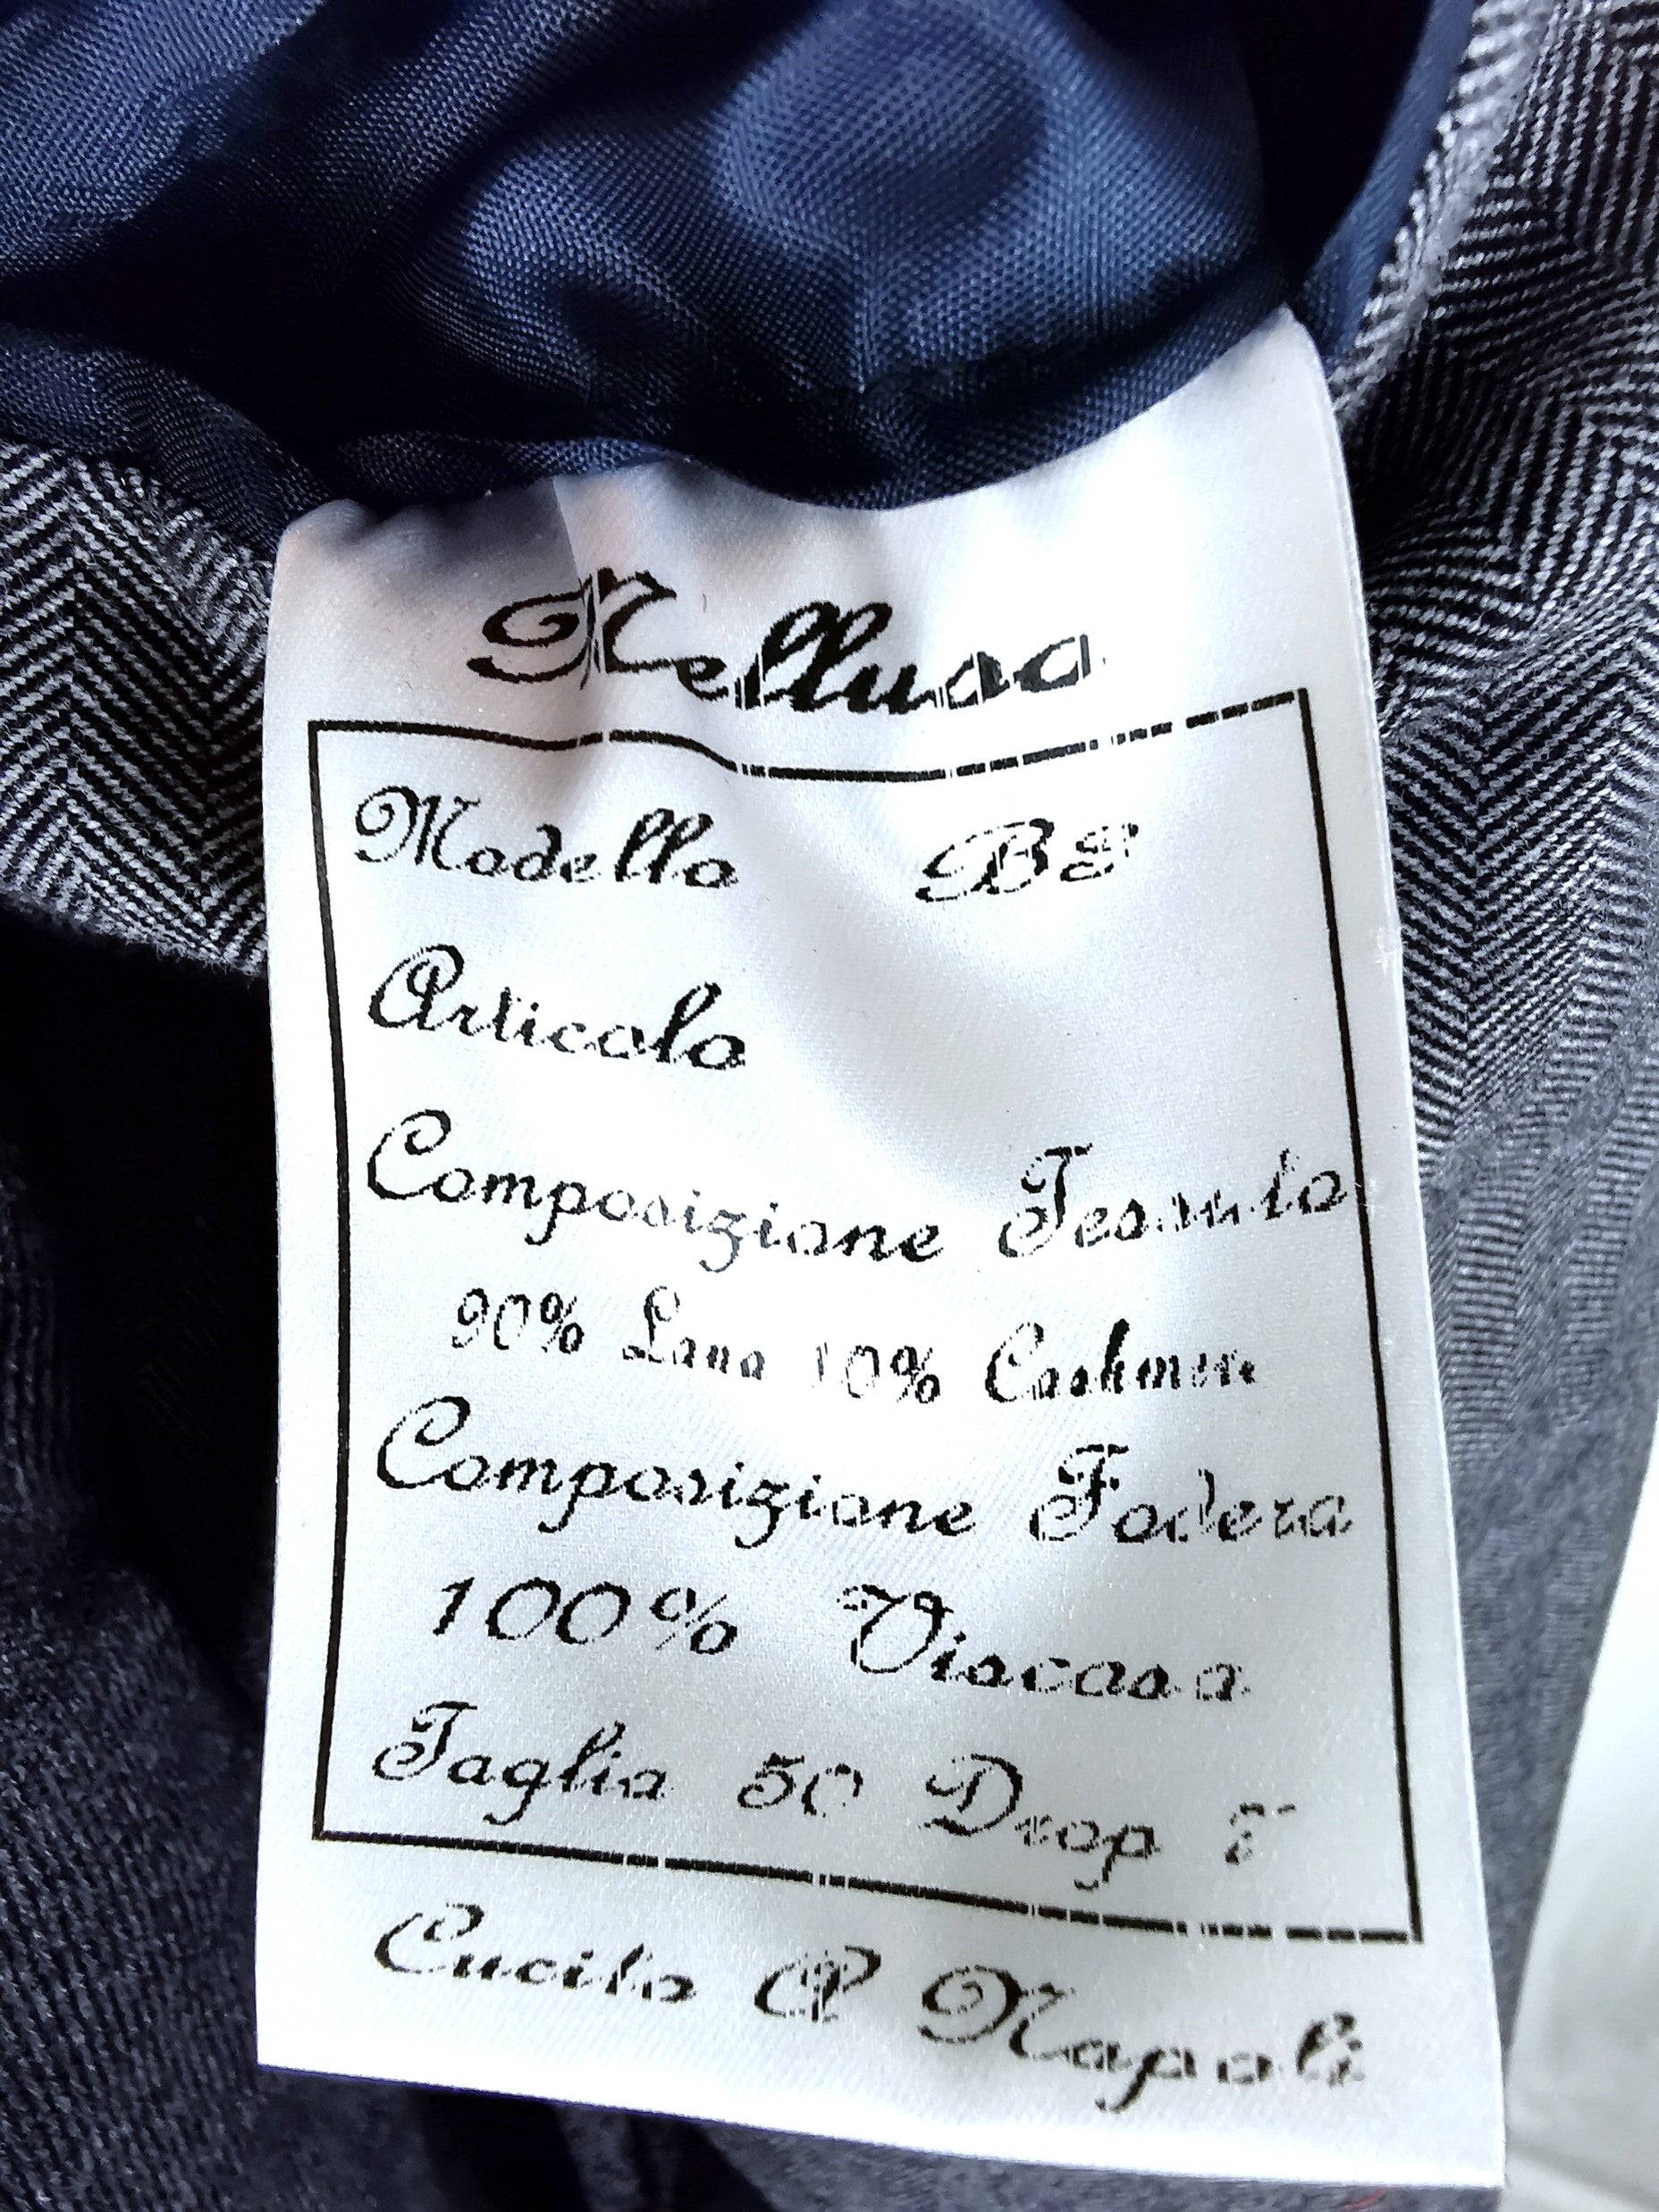 Modello B8
Articolo
Composizione Tessuto
90% Lana 10% Cashmere
Composizione Fodera
100% Viscosa
Taglia 50 Drop 7
Cucito A Napoli